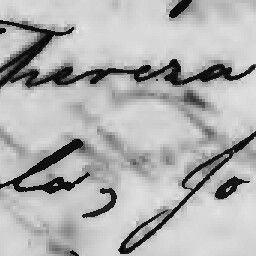 Thereza
la, Jo